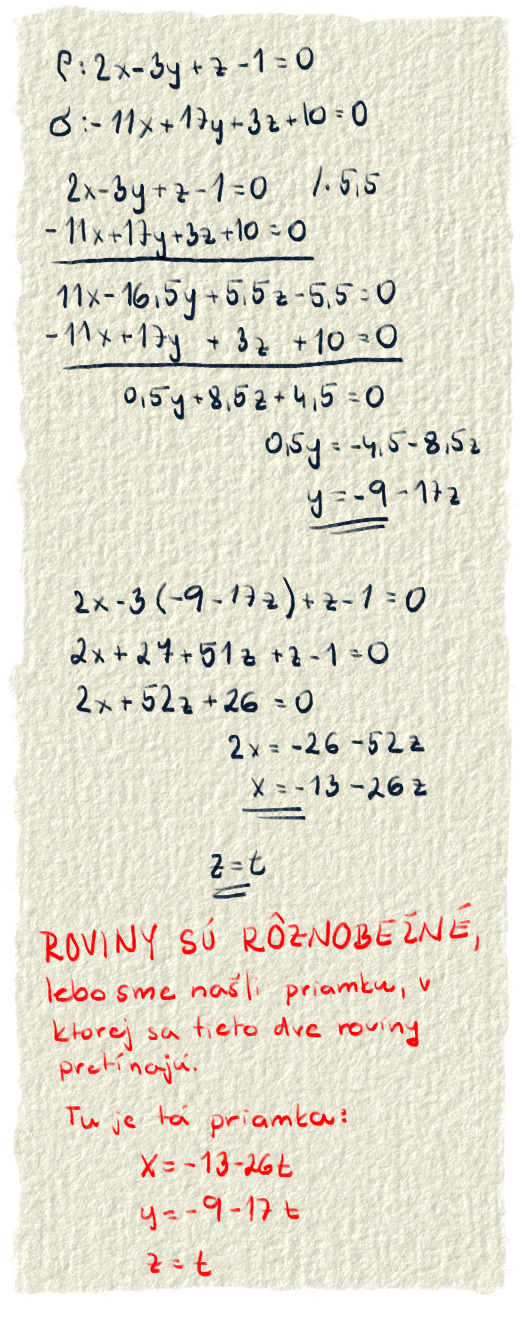 ρ: 2x-3y+z-1=0
σ: -11x+17y+3z+10=0
2x-3y+z-1=0 /. 5,5
-11x+17y+3z+10=0
11x-16,5y+5,5z-5,5=0
-11x+17y+3z+10=0
0,5y+8,5z+4,5=0
0,5y=-4,5-8,5z
y=-9-17z
2x-3(-9-17z)+z-1=0
2x+27+51z+z-1=0
2x+52z+26=0
2x=-26-52z
x=-13-26z
z=t
ROVINY SÚ RÔZNOBEŽNÉ,
lebo sme našli priamku, v
ktorej sa tieto dve roviny
pretínajú.
Tu je tá priamka:
x=-13-26t
y=-9-17t
z=t